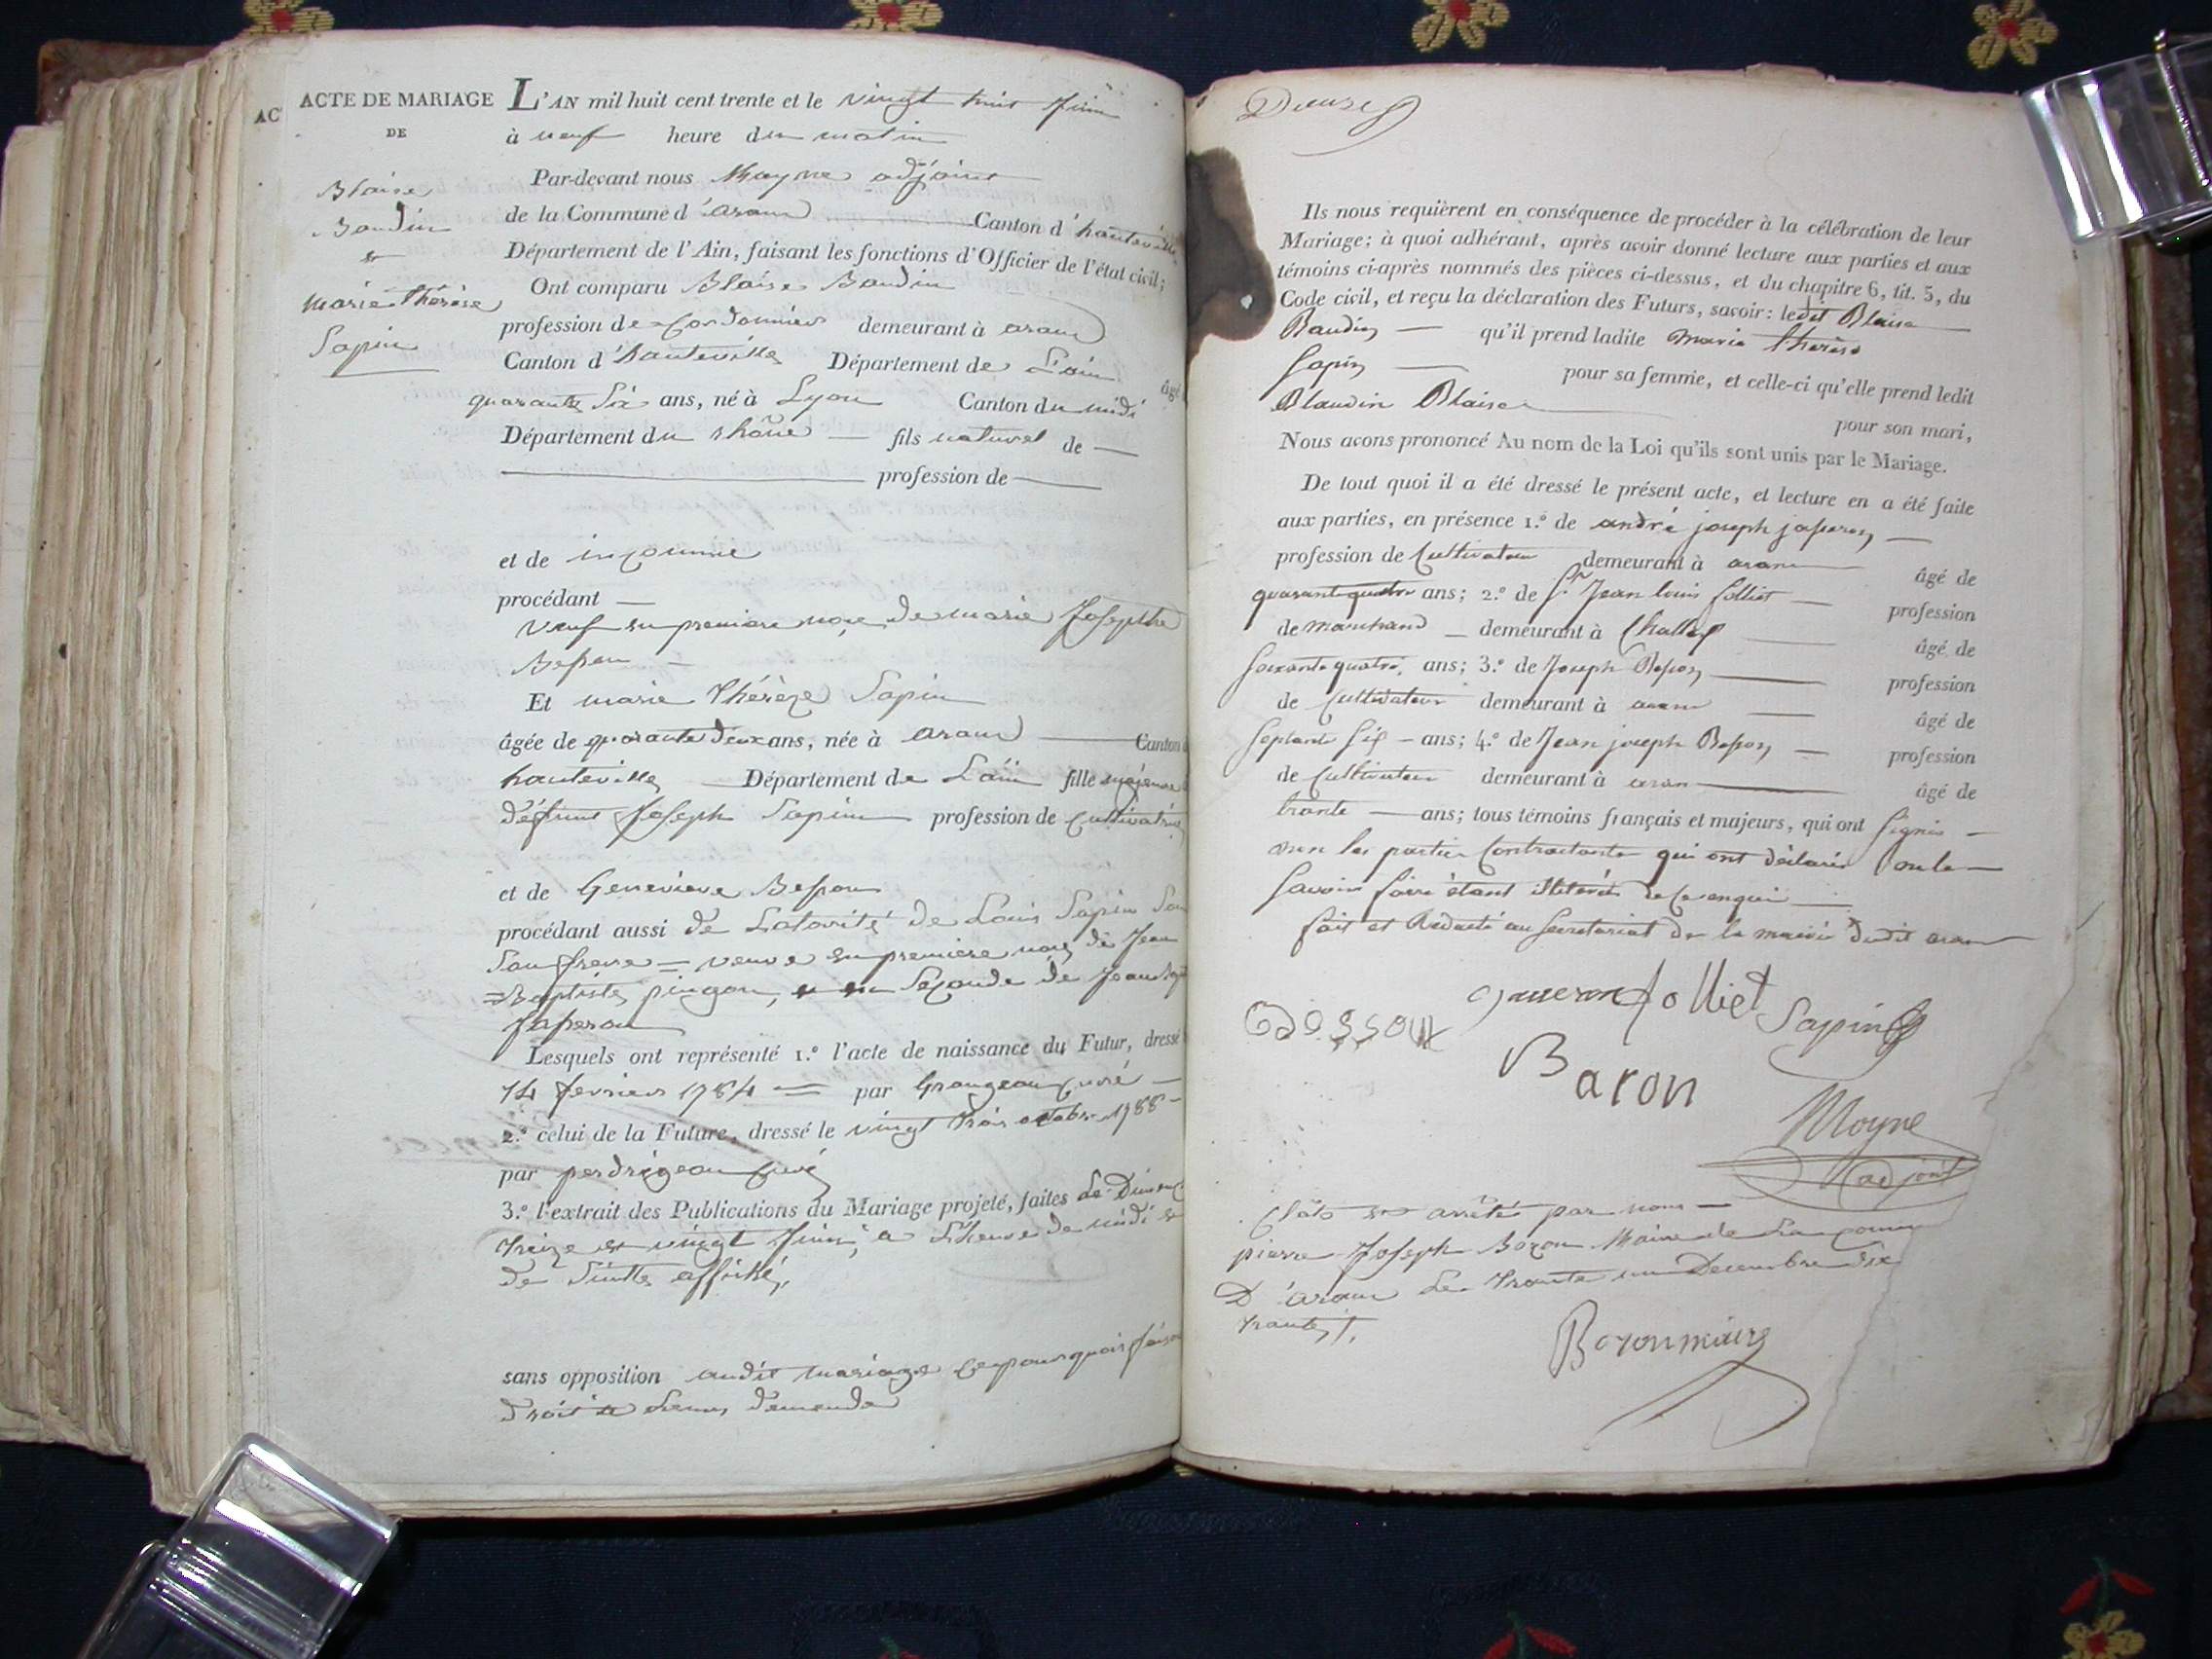 AC
ACTE DE MARIAGE
DE
Blaise
Baudin
et
marie thérèse
Sapin
L'AN mil huit cent trente et le vingt trois Juin
à neuf heure du matin
Par-devant nous Moyne adjoint
de la Commune d'aran Canton d'hauteville
Département de l'Ain, faisant les fonctions d'Officier de l'état civil;
Ont comparu Blaise Baudin
profession de Cordonnier demeurant à aran
Canton d'hauteville Département de L'ain âgé
quarante Six ans, né à Lyon Canton du midi
Département du rhône fils naturel de
profession de
et de inconnue
procédant
veuf en premiere noce de marie Josephte
Besson
Et marie thérèze Sapin
âgée de quarante deux ans, née à aran Canton d
hauteville Département de L'ain fille majeure
défunt Joseph Sapin profession de Cultivatrice
et de Genevieve Besson
procédant aussi de Lotorité de Louis Sapin Son
Son frere = veuve en premiere noce de Jean
=Baptiste pingon, et en Seconde de Jean
Japeron
Lesquels ont représenté 1.º l'acte de naissance du Futur, dressé
14 fevrier 1784 = par Grangean Curé
2.º celui de la Future, dressé le vingt trois octobre 1788
par perdrigeon Curé
3.º l'extrait des Publications du Mariage projeté, faites Le Dimenc
treize et vingt Juin, a L'heure de midi et
de Suitte affiché,
sans opposition audit mariage Cepourquoi faison
droit a Leurs demande
Ils nous requièrent en conséquence de procéder à la célébration de leur
Mariage; à quoi adhérant, après avoir donné lecture aux parties et aux
témoins ci-après nommés des pièces ci-dessus, et du chapitre 6, tit. 5, du
Code civil, et reçu la déclaration des Futurs, savoir: ledit Blaise
Baudin qu'il prend ladite marie thérèse
Sapin pour sa femme, et celle-ci qu'elle prend ledit
Blaudin Blaise pour son mari,
Nous avons prononcé Au nom de la Loi qu'ils sont unis par le Mariage.
De tout quoi il a été dressé le présent acte, et lecture en a été faite
aux parties, en présence 1.º de andré joseph japeron
profession de Cultivateur demeurant à aran âgé de
quarante quatre ans; 2.º de Sr. Jean louis folliet profession
de marchand demeurant à Challey âgé de
Soixante quatre ans; 3.º de Joseph Besson profession
de Cultivateur demeurant à aran âgé de
Septante Six ans; 4.º de Jean joseph Besson profession
de Cultivateur demeurant à aran âgé de
trante ans; tous témoins français et majeurs, qui ont Signés
non les parties Contractante qui ont déclarés
Savoir faire étant illiterés de Ce enquis
fait et Redacté au Secretariat de la mairie dudit aran
Japeron folliet Sapin
Besson
Baron
Moyne
adjoint
Clôts et arrêté par nous
pierre Joseph Bozon Maire de La Commune
D'aran Le trante un Decembre dix
trante
Bozon maire